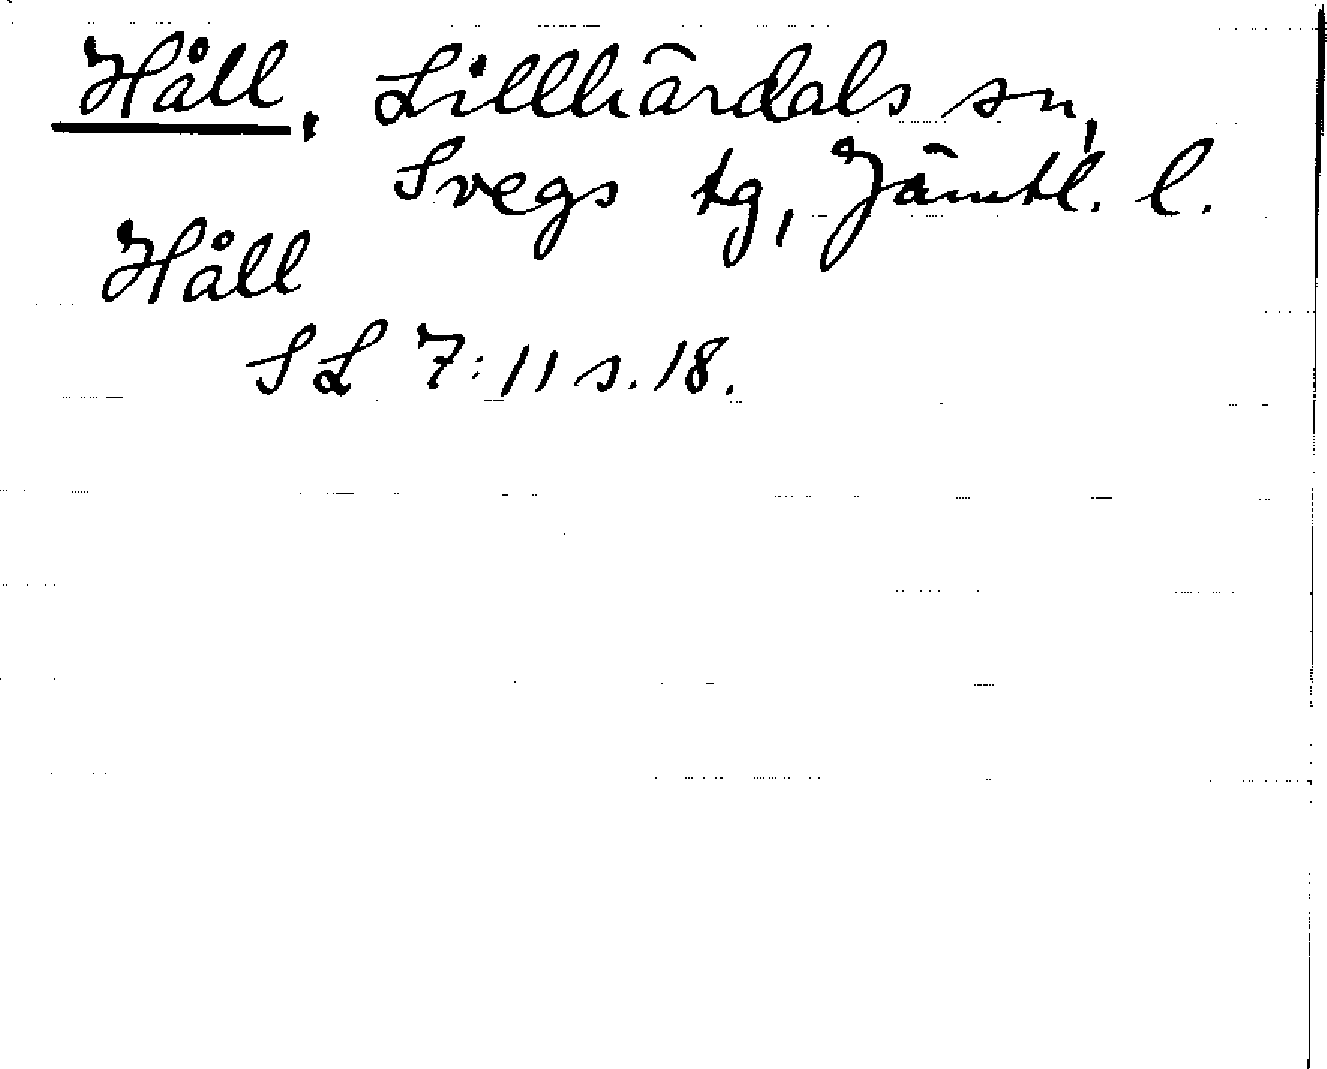 Håll, Lillhärdals sn,
Svegs tg, Jämtl. l.
Håll
SL 7:11 s. 18.